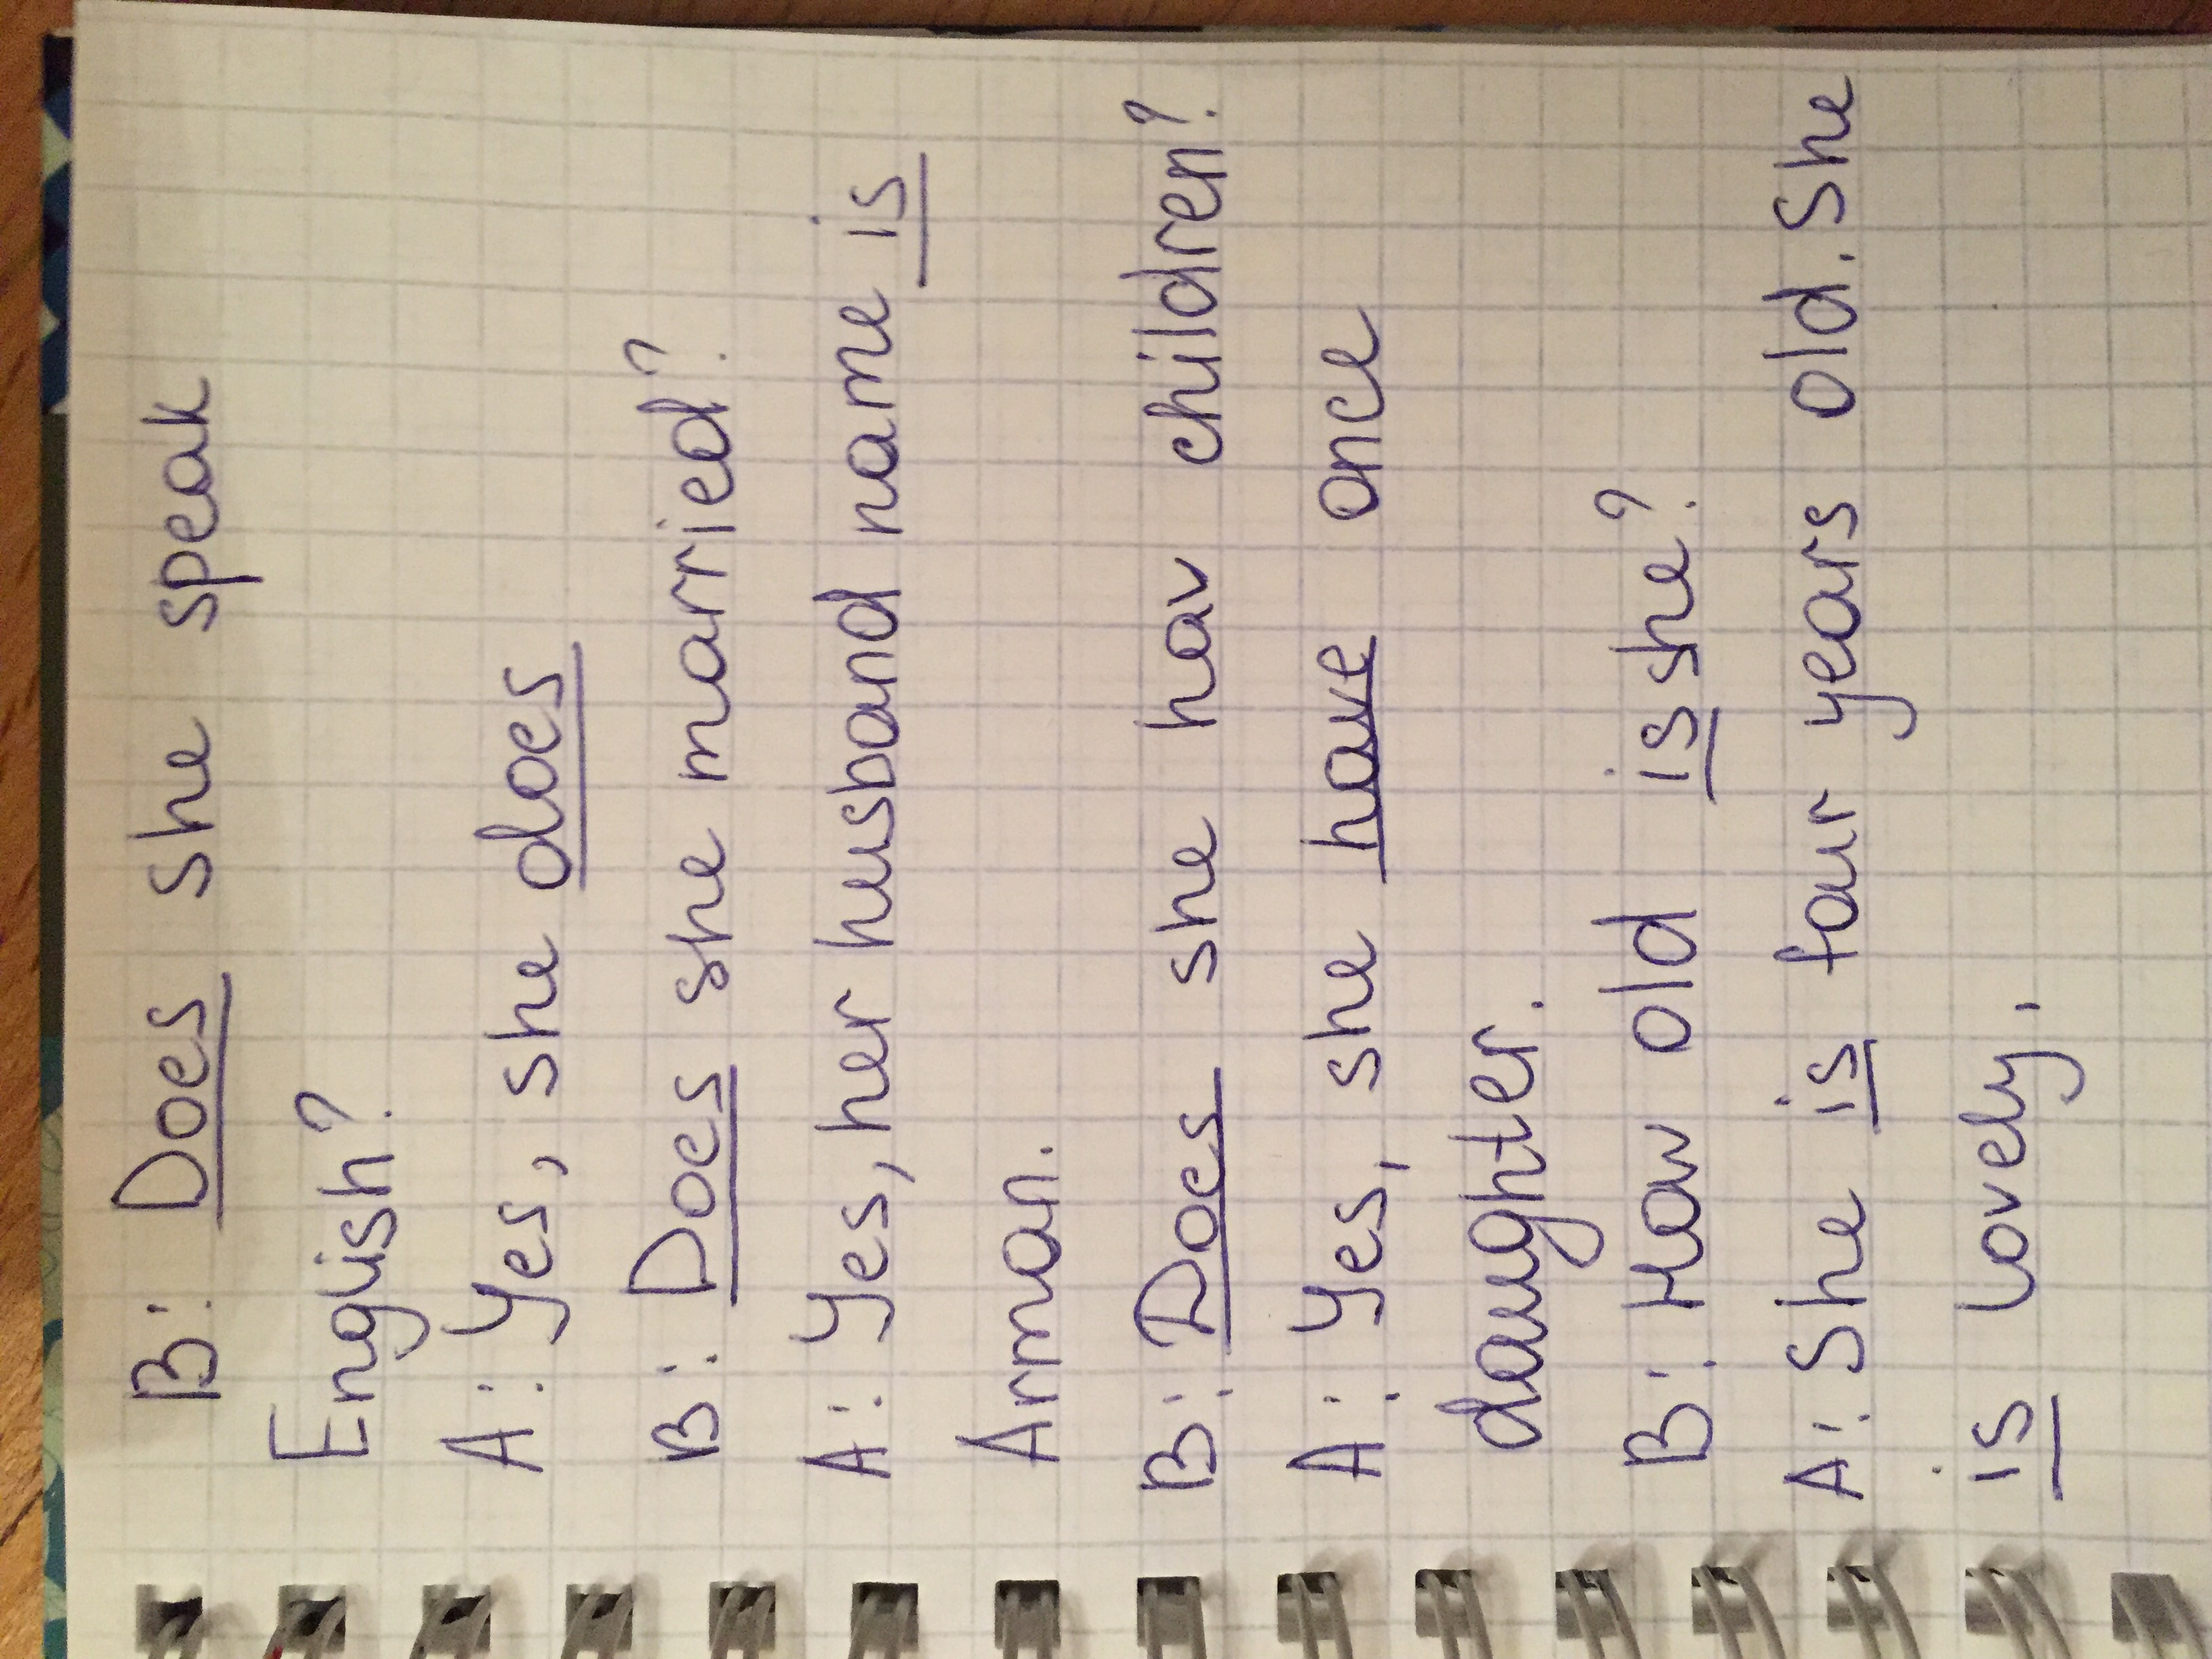 B: Does she speak
English?
A: Yes, she does
B: Does she married?
A: Yes, her husband name is
Arman.
B: Does she hav children?
A: Yes, she have once
daughter.
B: How old is she?
A: She is four years old. She
is lovely.